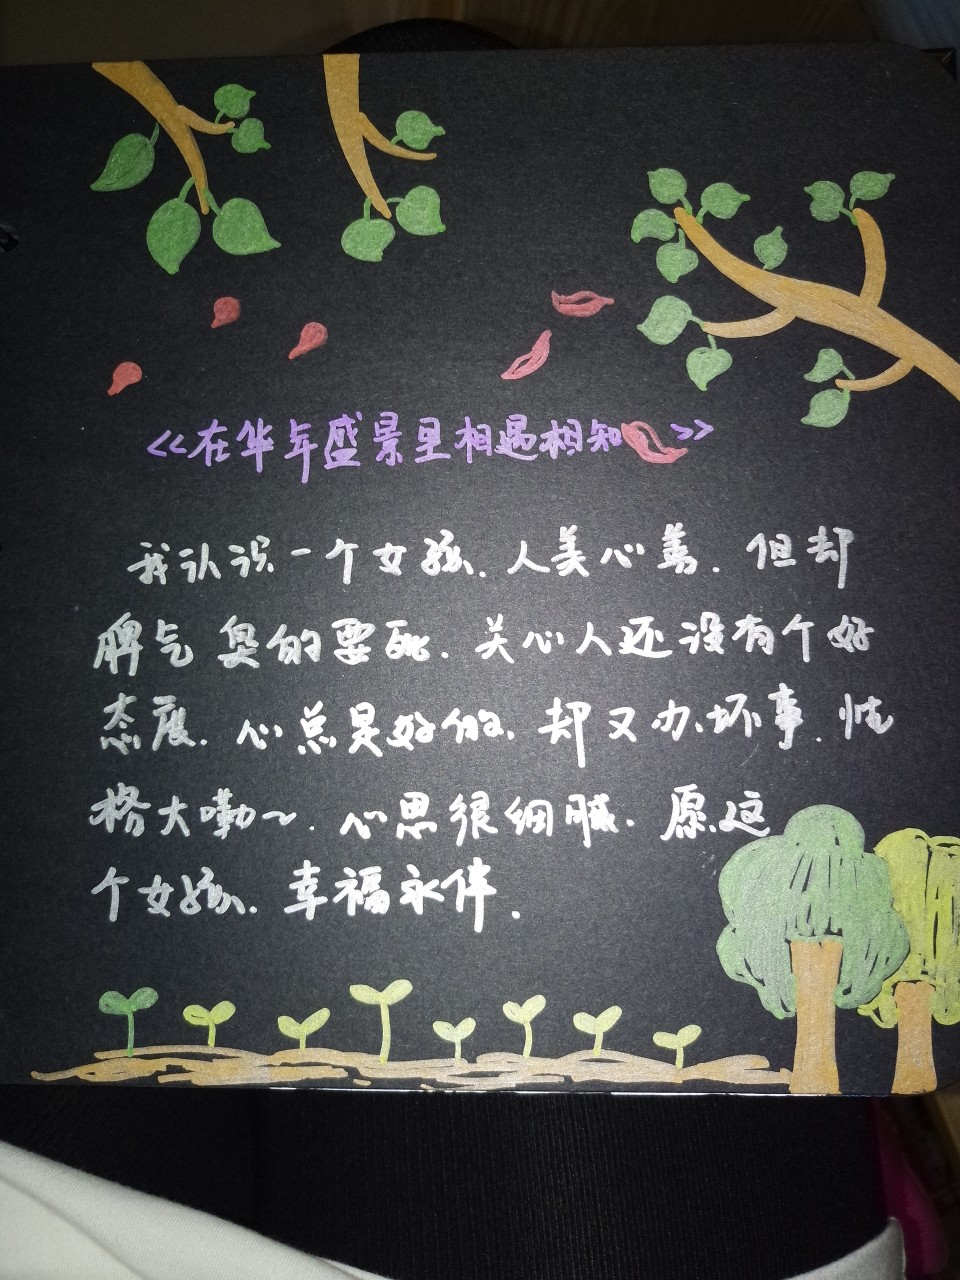 <<在华年盛景里相遇相知>>
我认识一个女孩.人美心善.但却
脾气臭的要死.关心人还没有个好
态度.心总是好的,却又办坏事.性
格大嘞~.心思很细腻.愿这
个女孩.幸福永伴.